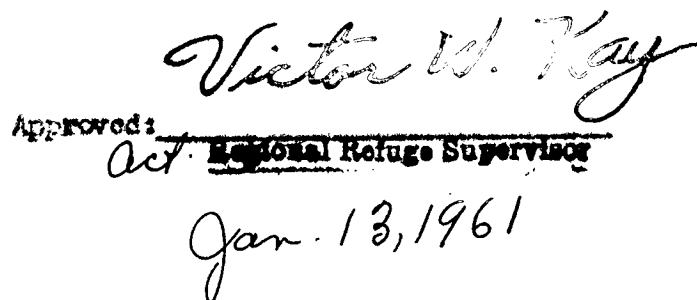 Victor W. Kay
Approved:
Act. Regional Refuge Supervisor
Jan. 13, 1961